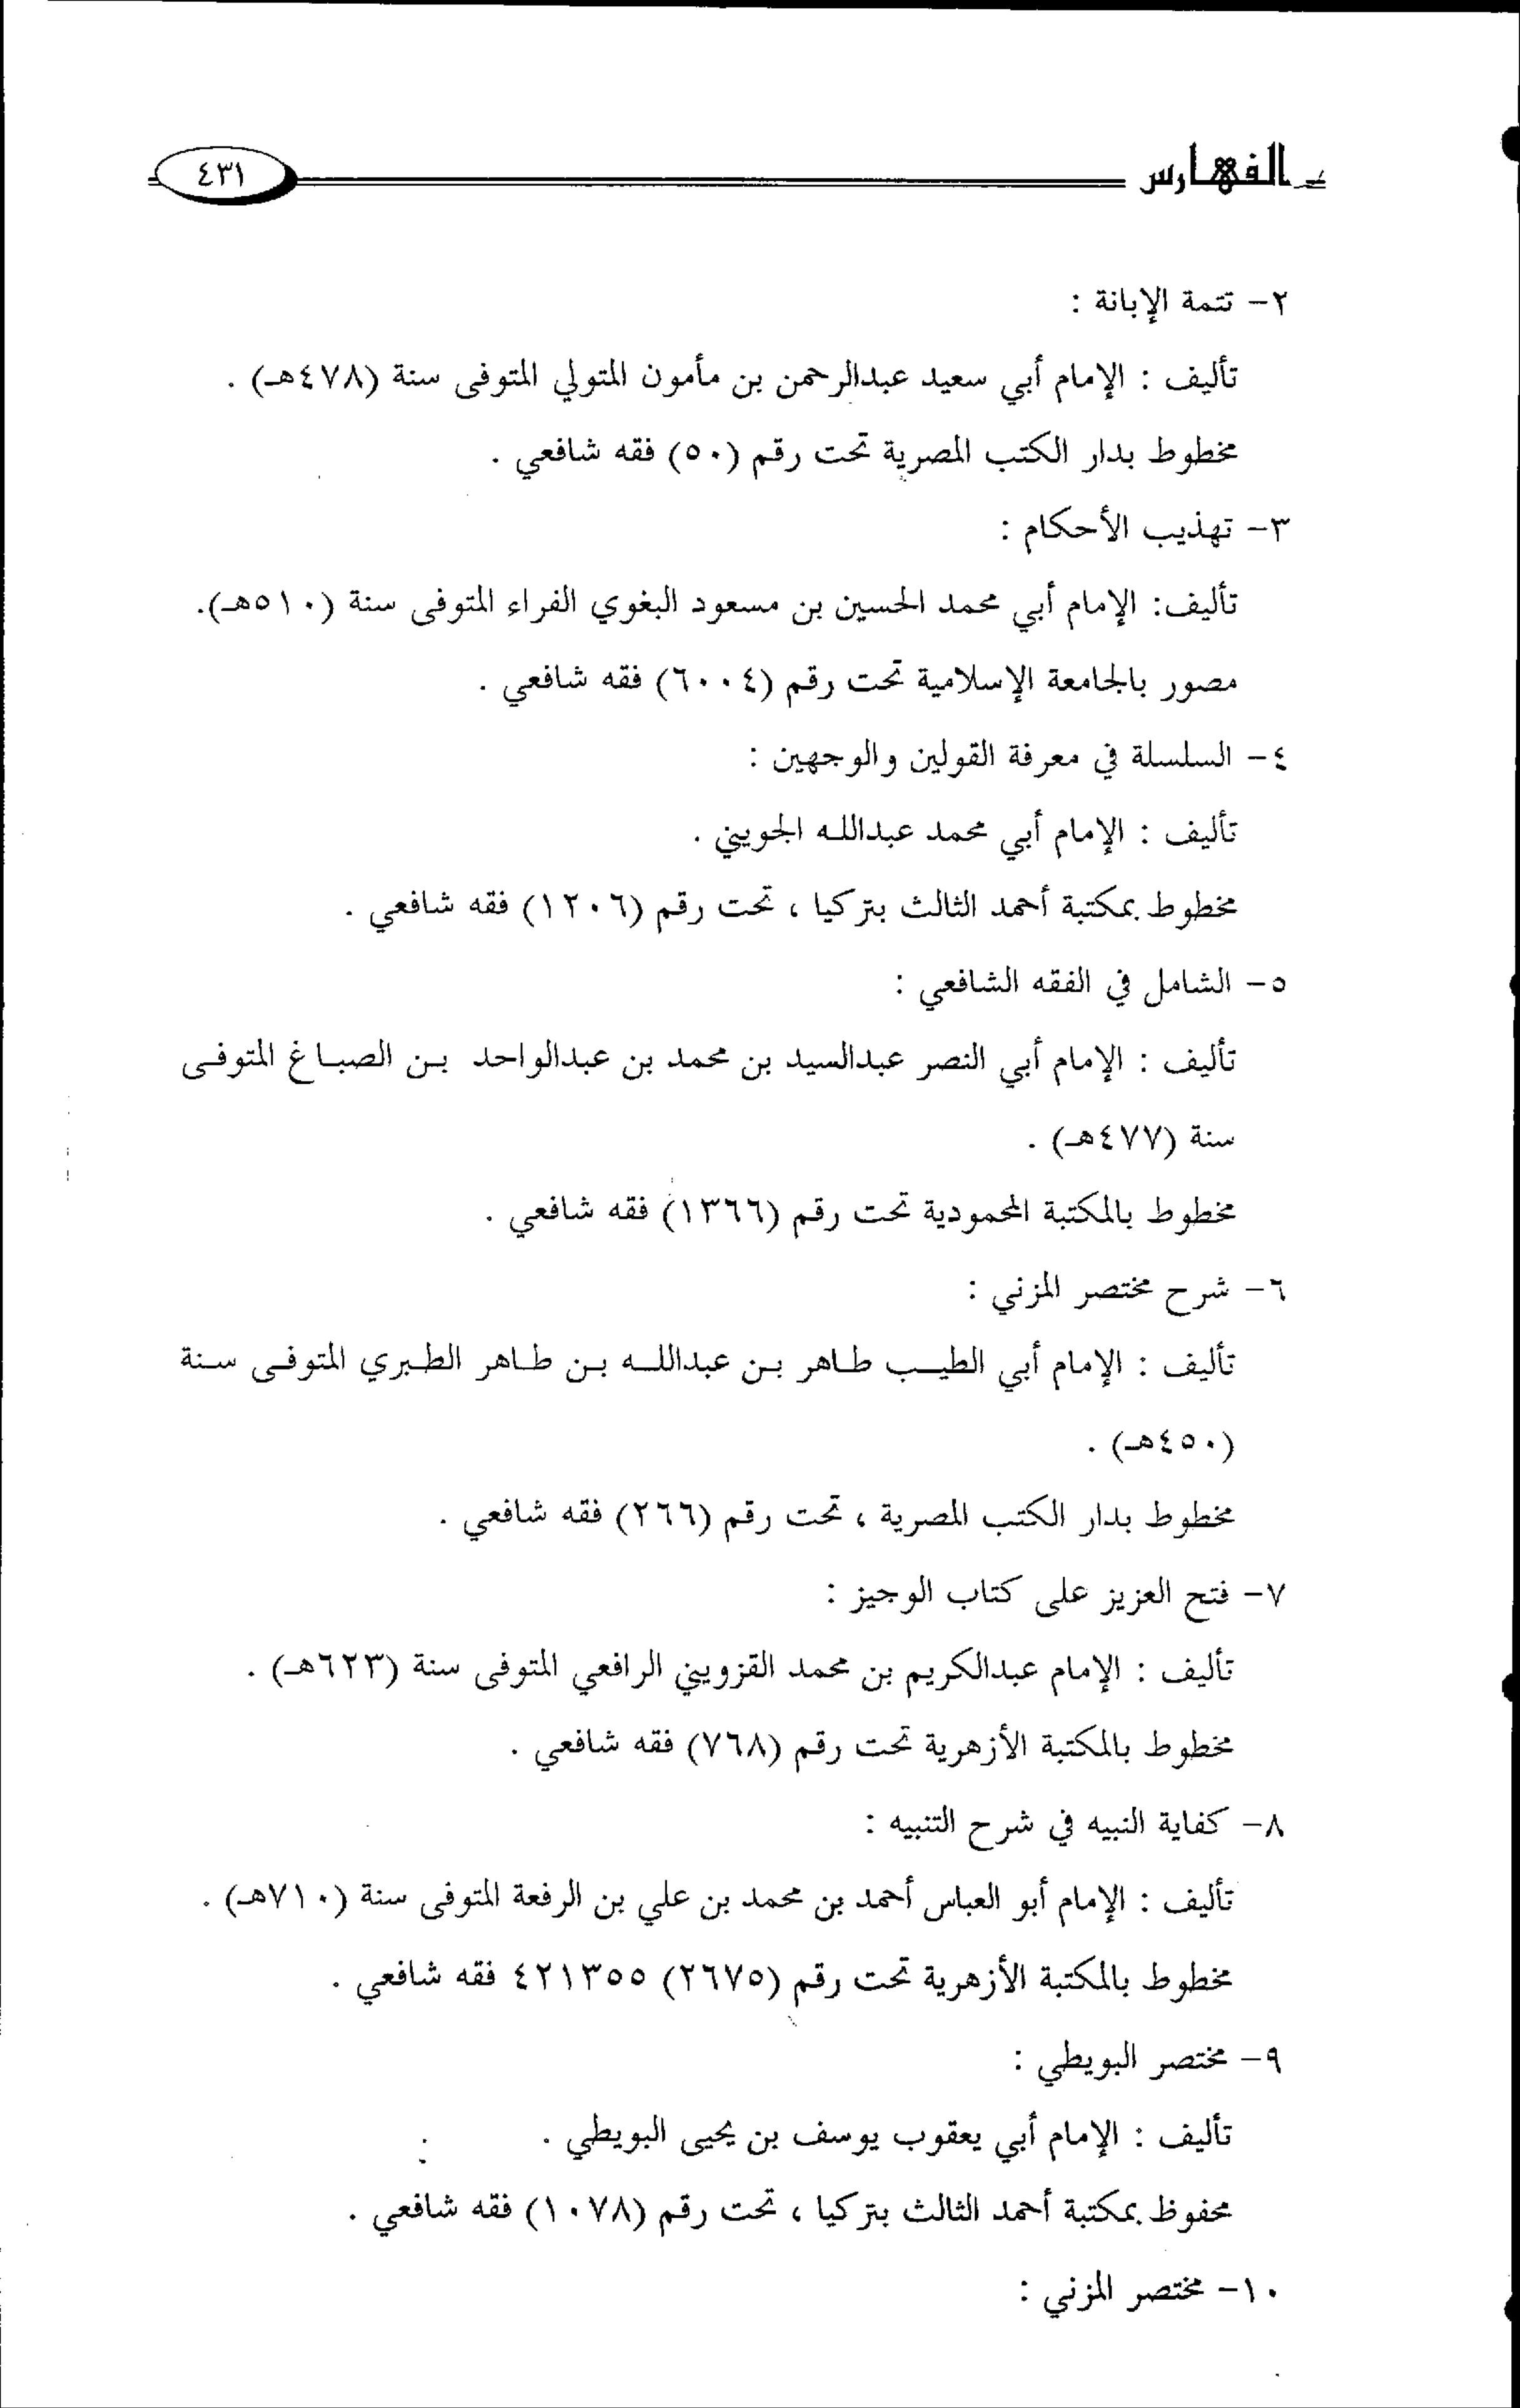 الفهارس ٤٣١
٢- تتمة الإبانة :
تأليف : الإمام أبي سعيد عبدالرحمن بن مأمون المتولي المتوفى سنة (٤٧٨هـ) .
مخطوط بدار الكتب المصرية تحت رقم (٥٠) فقه شافعي .
٣- تهذيب الأحكام :
تأليف: الإمام أبي محمد الحسين بن مسعود البغوي الفراء المتوفى سنة (٥١٠هـ).
مصور بالجامعة الإسلامية تحت رقم (٦٠٠٤) فقه شافعي .
٤- السلسلة في معرفة القولين والوجهين :
تأليف : الإمام أبي محمد عبدالله الجويني .
مخطوط بمكتبة أحمد الثالث بتركيا ، تحت رقم (١٢٠٦) فقه شافعي .
٥- الشامل في الفقه الشافعي :
تأليف : الإمام أبي النصر عبدالسيد بن محمد بن عبدالواحد بن الصباغ المتوفى
سنة (٤٧٧هـ) .
مخطوط بالمكتبة المحمودية تحت رقم (١٣٦٦) فقه شافعي .
٦- شرح مختصر المزني :
تأليف : الإمام أبي الطيب طاهر بن عبدالله بن طاهر الطبري المتوفى سنة
(٤٥٠هـ) .
مخطوط بدار الكتب المصرية ، تحت رقم (٢٦٦) فقه شافعي .
٧- فتح العزيز على كتاب الوجيز :
تأليف : الإمام عبدالكريم بن محمد القزويني الرافعي المتوفى سنة (٦٢٣هـ) .
مخطوط بالمكتبة الأزهرية تحت رقم (٧٦٨) فقه شافعي .
٨- كفاية النبيه في شرح التنبيه :
تأليف : الإمام أبو العباس أحمد بن محمد بن علي بن الرفعة المتوفى سنة (٧١٠هـ) .
مخطوط بالمكتبة الأزهرية تحت رقم (٢٦٧٥) ٤٢١٣٥٥ فقه شافعي .
٩- مختصر البويطي :
تأليف : الإمام أبي يعقوب يوسف بن يحيى البويطي .
محفوظ بمكتبة أحمد الثالث بتركيا ، تحت رقم (١٠٧٨) فقه شافعي .
١٠- مختصر المزني :